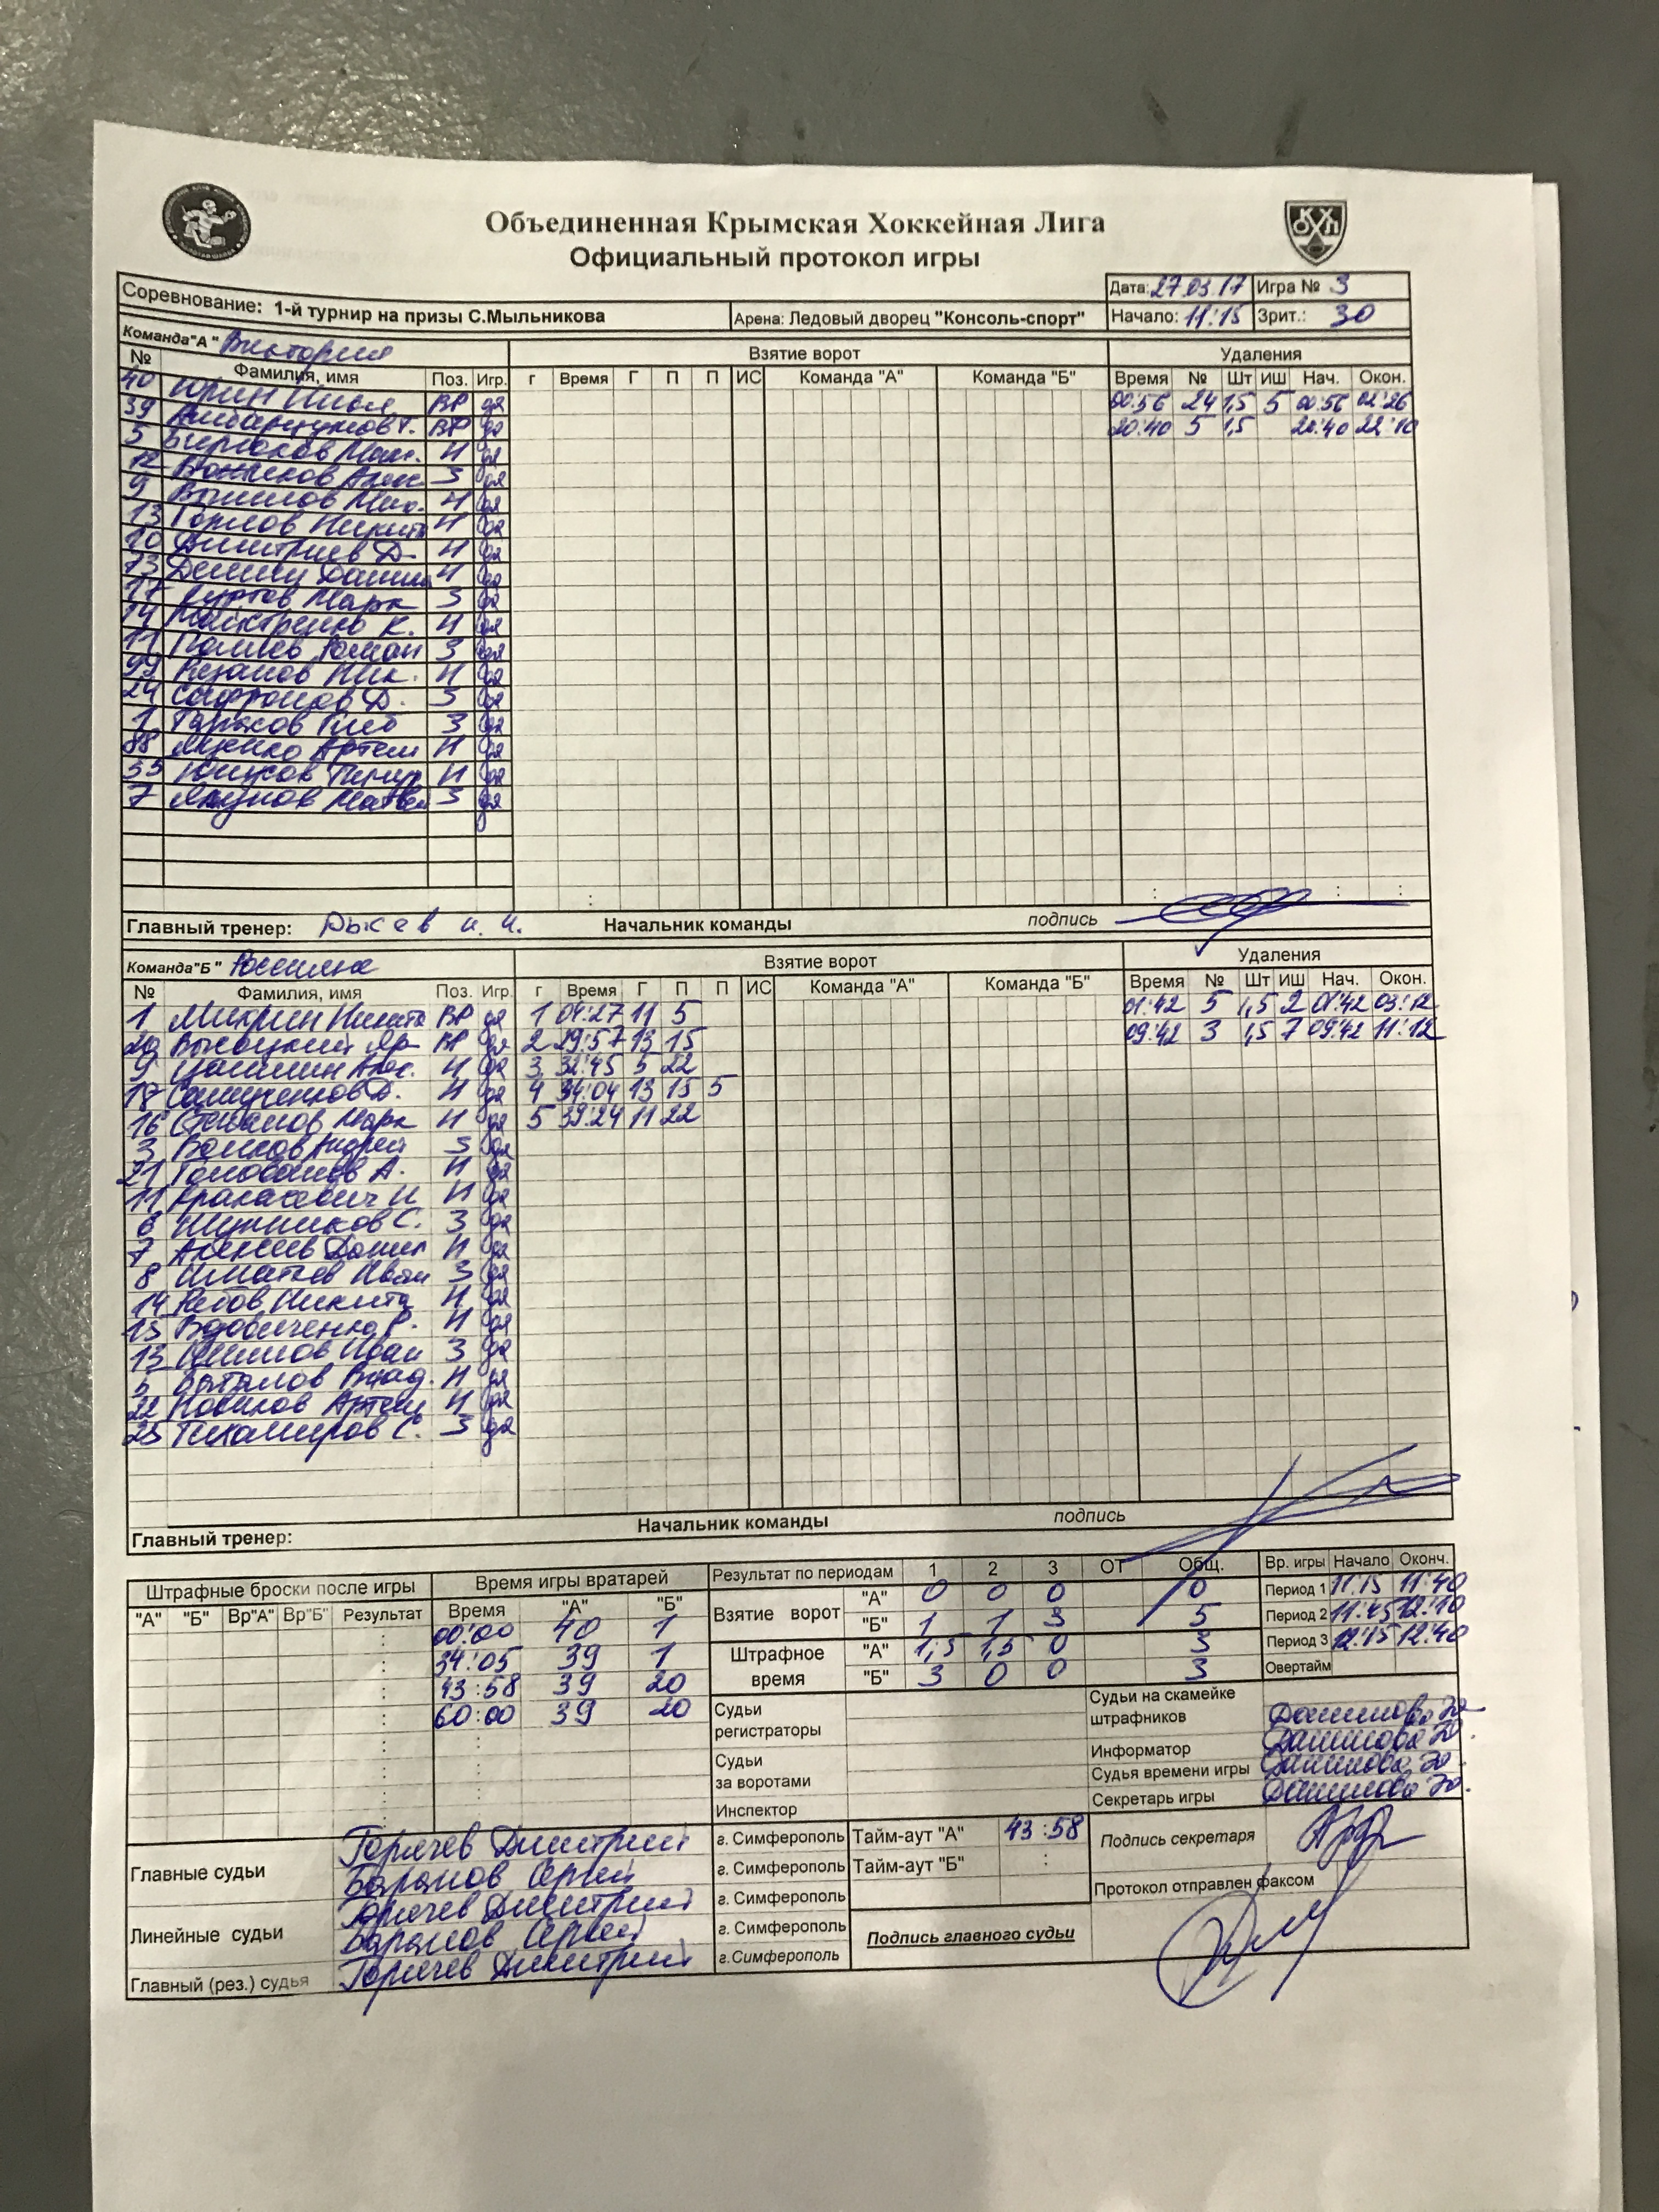 Объединенная Крымская Хоккейная Лига
Официальный протокол игры
Дата: 27.03.17 Игра № 3
Соревнование: 1-й турнир на призы С.Мыльникова Арена: Ледовый дворец "Консоль-спорт" Начало: 11:15 Зрит.: 30
Команда "А" Виктория Взятие ворот Удаления
№ Фамилия, имя Поз. Игр. г Время Г П П ИС Команда "А" Команда "Б" Время № Шт ИШ Нач. Окон.
40 Юрин ВР да 00:56 24 1,5 5 00:56 02:26
39 ВР да 20:40 5 1,5 20:40 22:10
5 Бирюков Н да
12 З да
9 Н да
13 Горлов Никита Н да
10 Дмитриев Д. Н да
73 Н да
17 Марк З да
14 К. Н да
11 Роман З да
99 Ник. Н да
24 Сафронов Д. З да
1 Тарасов Глеб З да
88 Яценко Артем Н да
55 Н да
7 Матвей З да
Главный тренер: Начальник команды подпись
Команда "Б" Россияне Взятие ворот Удаления
№ Фамилия, имя Поз. Игр. г Время Г П П ИС Команда "А" Команда "Б" Время № Шт ИШ Нач. Окон.
1 Микрин Никита ВР да 1 04:27 11 5 01:42 5 1,5 2 01:42 03:12
20 Высоцкий Яр ВР да 2 29:57 13 15 09:42 3 1,5 7 09:42 11:12
9 Н да 3 32:45 5 22
18 Д. Н да 4 34:04 13 15 5
16 Степанов Марк Н да 5 39:24 11 22
3 Волков Андрей З да
21 Голованов А. Н да
11 Н да
6 С. З да
7 Алексеев Данил Н да
8 Игнатьев Иван З да
14 Никита Н да
15 Вдовиченко Р. Н да
13 Иван З да
5 Влад. Н да
22 Новиков Артем Н да
23 Тихомиров С. З да
Главный тренер: Начальник команды подпись
Штрафные броски после игры Время игры вратарей Результат по периодам 1 2 3 ОТ Общ. Вр. игры Начало Оконч.
"А" "Б" Вр"А" Вр"Б" Результат Время "А" "Б"
Взятие ворот "А" 0 0 0 0 Период 1 11:15 11:40
00:00 40 1 "Б" 1 1 3 5 Период 2 11:45 12:10
34:05 39 1 Штрафное время "А" 1,5 1,5 0 3 Период 3 12:15 12:40
43:58 39 20 "Б" 3 0 0 3 Овертайм
60:00 39 20
Судьи регистраторы Судьи на скамейке штрафников Данилова Ю.
Информатор Данилова Ю.
Судьи за воротами Судья времени игры Данилова Ю.
Инспектор Секретарь игры Данилова Ю.
Главные судьи Горячев Дмитрий г. Симферополь Тайм-аут "А" 43:58 Подпись секретаря
Баранов Сергей г. Симферополь Тайм-аут "Б" :
Линейные судьи Горячев Дмитрий г. Симферополь Протокол отправлен факсом
Баранов Сергей г. Симферополь Подпись главного судьи
Главный (рез.) судья Горячев Дмитрий г. Симферополь